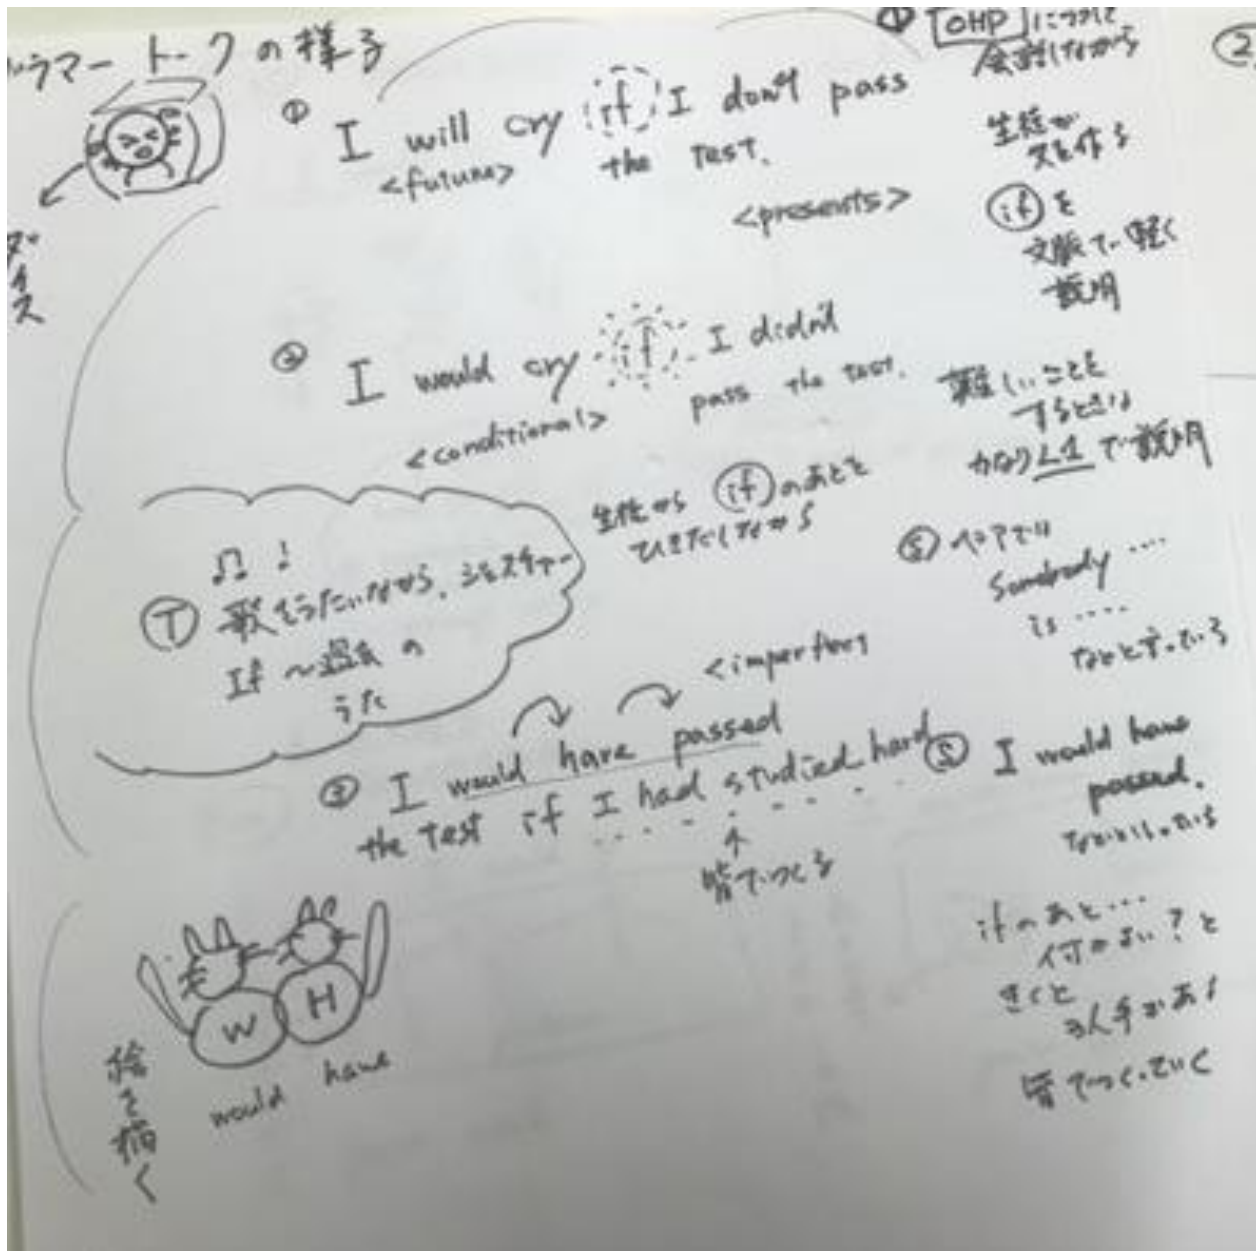 ラマートークの様子
ダイス
① I will cry if I don't pass
the test.
<future>
<presents>
② I would cry if I didn't
pass the test.
<conditional>
生徒から if のあとを
ひきだしながら
♫ ♩
Ⓣ 歌をうたいながら、ジェスチャー
If ~過去の
うた
<imperfect
③ I would have passed
the test if I had studied hard
↑
皆でつくる
W H
would have
絵で描く
① OHPについて
会話しながら
生徒が
文を作る
if を
文脈で軽く
説明
難しいことを
するときは
かなりL1で説明
Ⓢ ペアでは
Somebody ....
is ....
などと言っている
Ⓢ I would have
passed.
などといっている
ifのあと...
何がよい?と
きくと
3人手があがる
皆でつくっていく
②